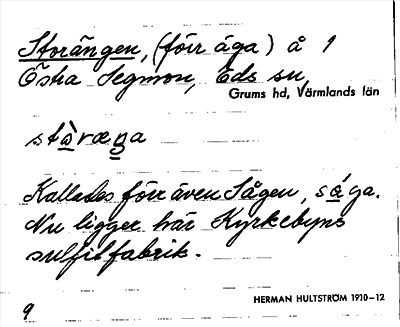 Storängen, (förr äga) å 1
Östra Segmon, Eds sn,
Grums hd, Värmlands län
stàræŋa
Kallades förr även Sågen, sága.
Nu ligger här Kyrkebyns
sulfitfabrik.
HERMAN HULTSTRÖM 1910-12
9